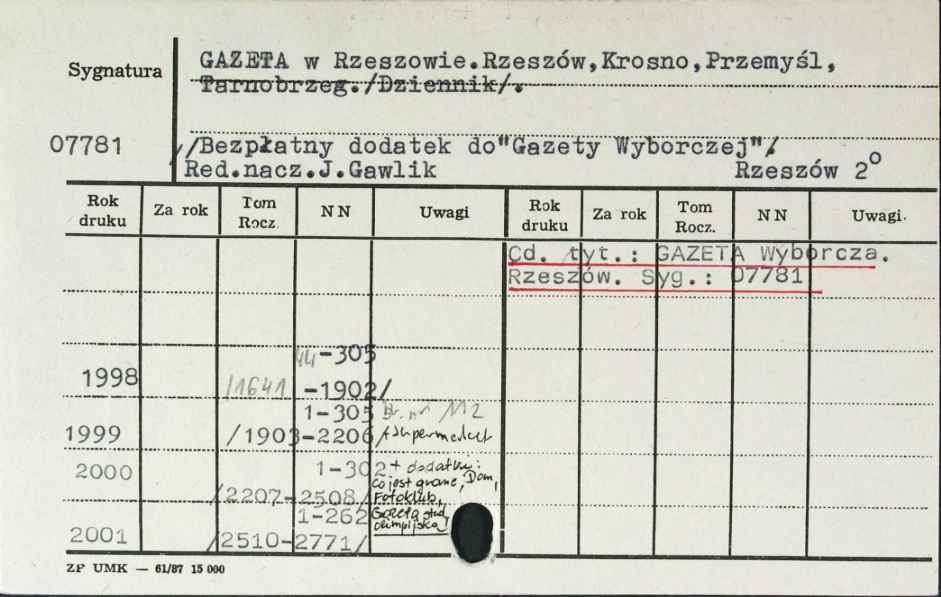 Sygnatura
GAZETA w Rzeszowie.Rzeszów,Krosno,Przemyśl,
Tarnobrzeg./Dziennik/.
07781
/Bezpłatny dodatek do"Gazety Wyborczej"/
Red.nacz.J.Gawlik Rzeszów 2°
Rok druku Za rok Tom Rocz. NN Uwagi Rok druku Za rok Tom Rocz. NN Uwagi
Cd. tyt.: GAZETA Wyborcza.
Rzeszów. Syg.: 07781
44-305
1998 /1641 -1902/
1-305 Br. nr 112
1999 /1903-2206 + Supermarket
2000 1-302 + dodatki:
co jest grane, Dom,
/2207-2508/ Fotoklub,
1-262 Gazeta
olimpijska
2001 /2510-2771/
ZP UMK — 61/87 15 000